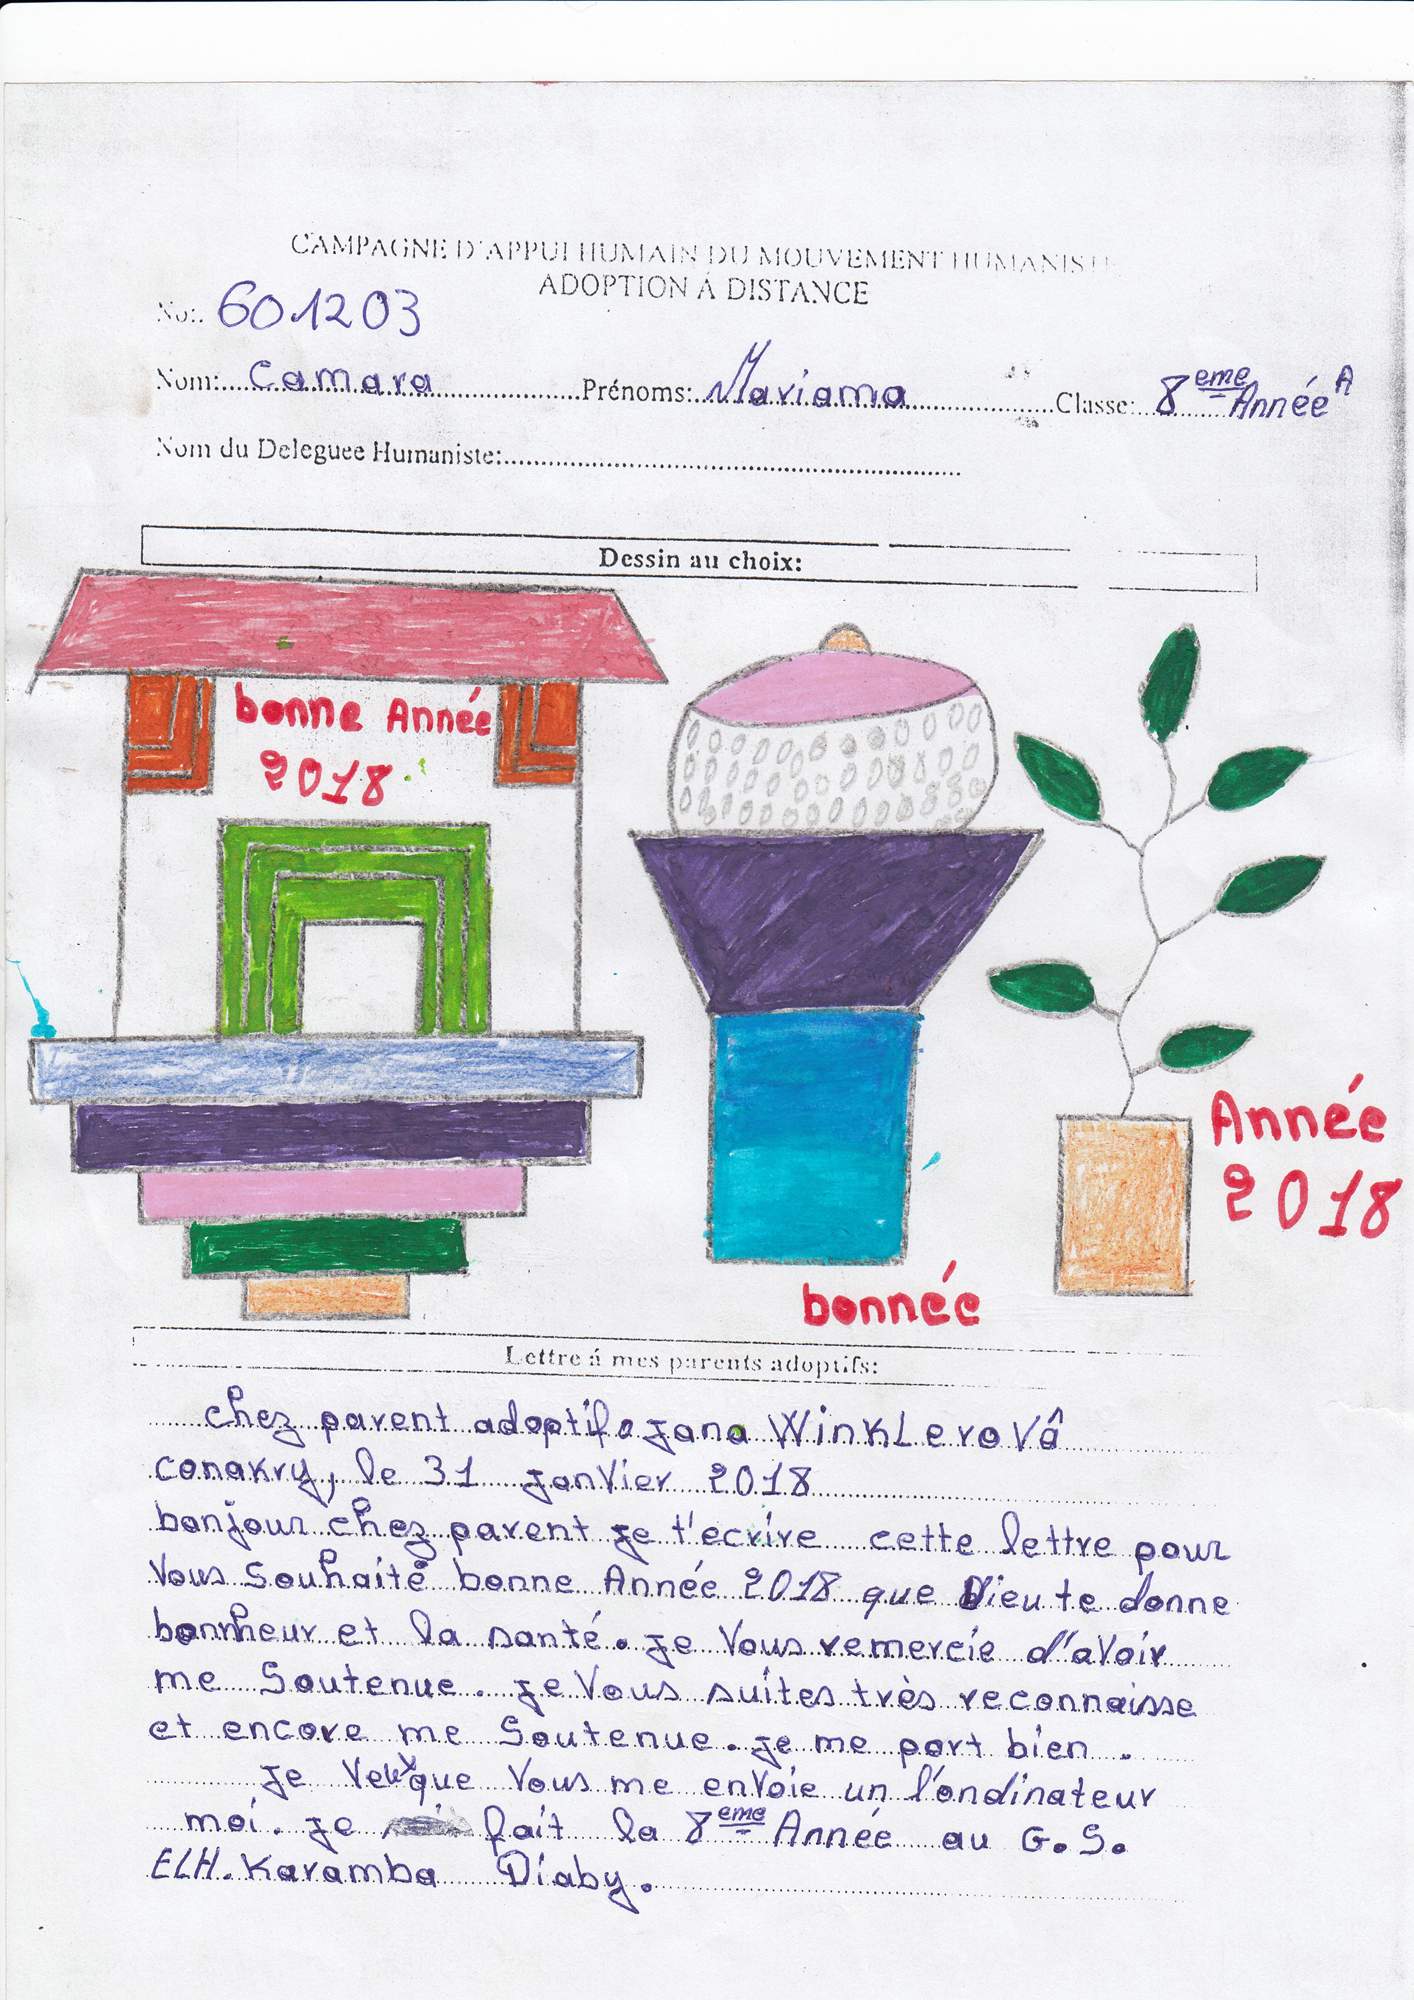 CAMPAGNE D'APPUI HUMAIN DU MOUVEMENT HUMANISTE
ADOPTION Á DISTANCE
No: 601203
Nom: Camara Prénoms: Mariama Classe: 8eme Année A
Nom du Deleguee Humaniste:
Dessin au choix:
bonne Année
2018
Année
2018
bonnée
Lettre á mes parents adoptifs:
chez parent adoptif Jana WinKLerovâ
conakry, le 31 janvier 2018
bonjour chez parent je t'ecrire cette lettre pour
Vous Souhaité bonne Année 2018 que Dieu te donne
bonheur et la santé. je Vous remercie d'aVoir
me Soutenue. je Vous suites très reconnaisse
et encore me Soutenue. je me port bien.
je Veux que Vous me enVoie un l'ondinateur
moi. je fait la 8eme Année au G.S.
ELH. Karamba Diaby.